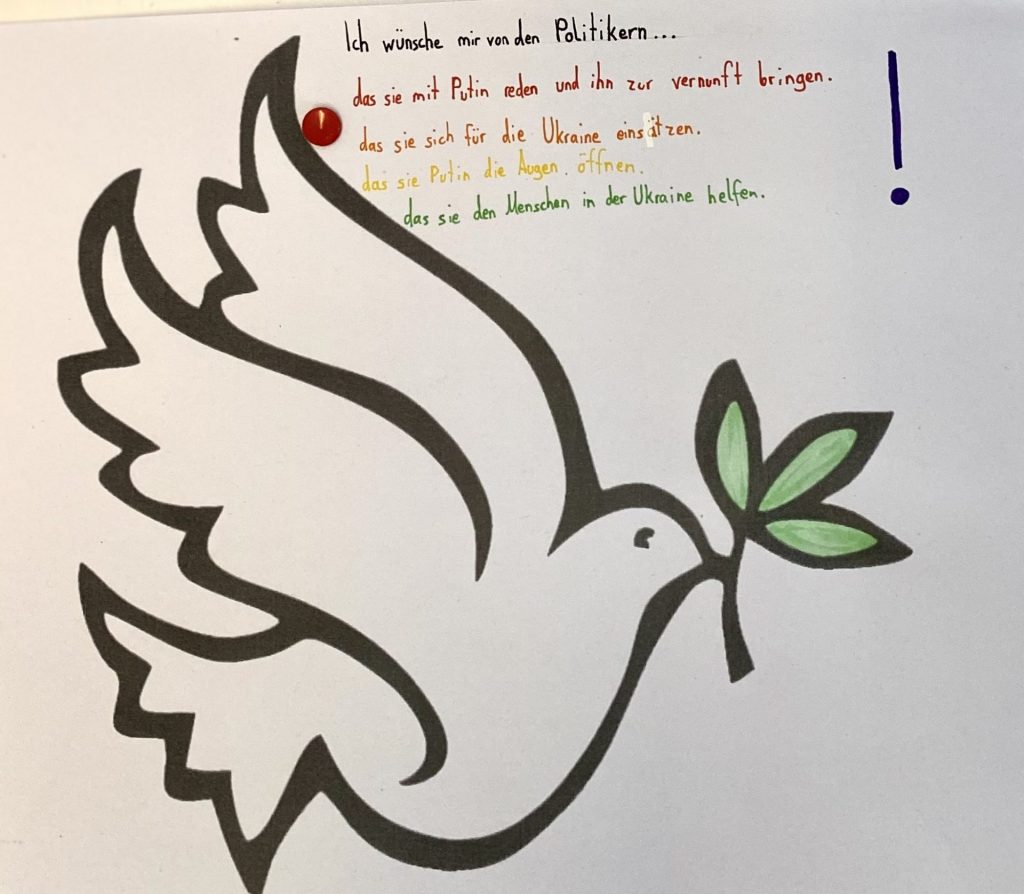 Ich wünsche mir von den Politikern...
das sie mit Putin reden und ihn zur vernunft bringen.
das sie sich für die Ukraine einsätzen.
das sie Putin die Augen. öffnen.
das sie den Menschen in der Ukraine helfen.
!